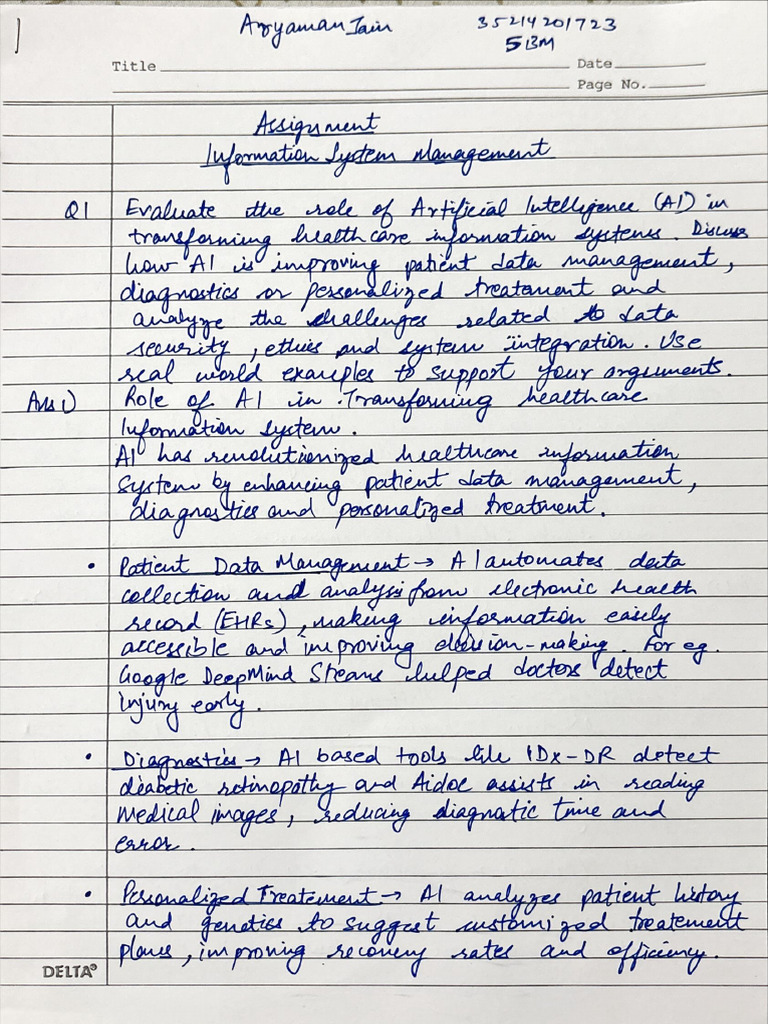 1
Aryaman Jain 35214201723
5BM
Title Date
Page No.
Assignment
Information System Management
Q1 Evaluate the role of Artificial Intelligence (AI) in
transforming healthcare information systems. Discuss
how AI is improving patient data management,
diagnostics or personalized treatement and
analyze the challenges related to data
security, ethics and system integration. Use
real world examples to support your arguments.
Ans 1) Role of AI in Transforming healthcare
Information system.
AI has revolutionized healthcare information
system by enhancing patient data management,
diagnostics and personalized treatment.
• Patient Data Management → AI automates data
collection and analysis from electronic health
record (EHRs), making information easily
accessible and improving decision-making. For eg.
Google DeepMind Streams helped doctors detect
injury early.
• Diagnostics → AI based tools like IDx-DR detect
diabetic retinopathy and Aidoc assists in reading
medical images, reducing diagnostic time and
error.
• Personalized Treatement → AI analyzes patient history
and genetics to suggest customized treatement
plans, improving recovery rates and efficiency.
DELTA®